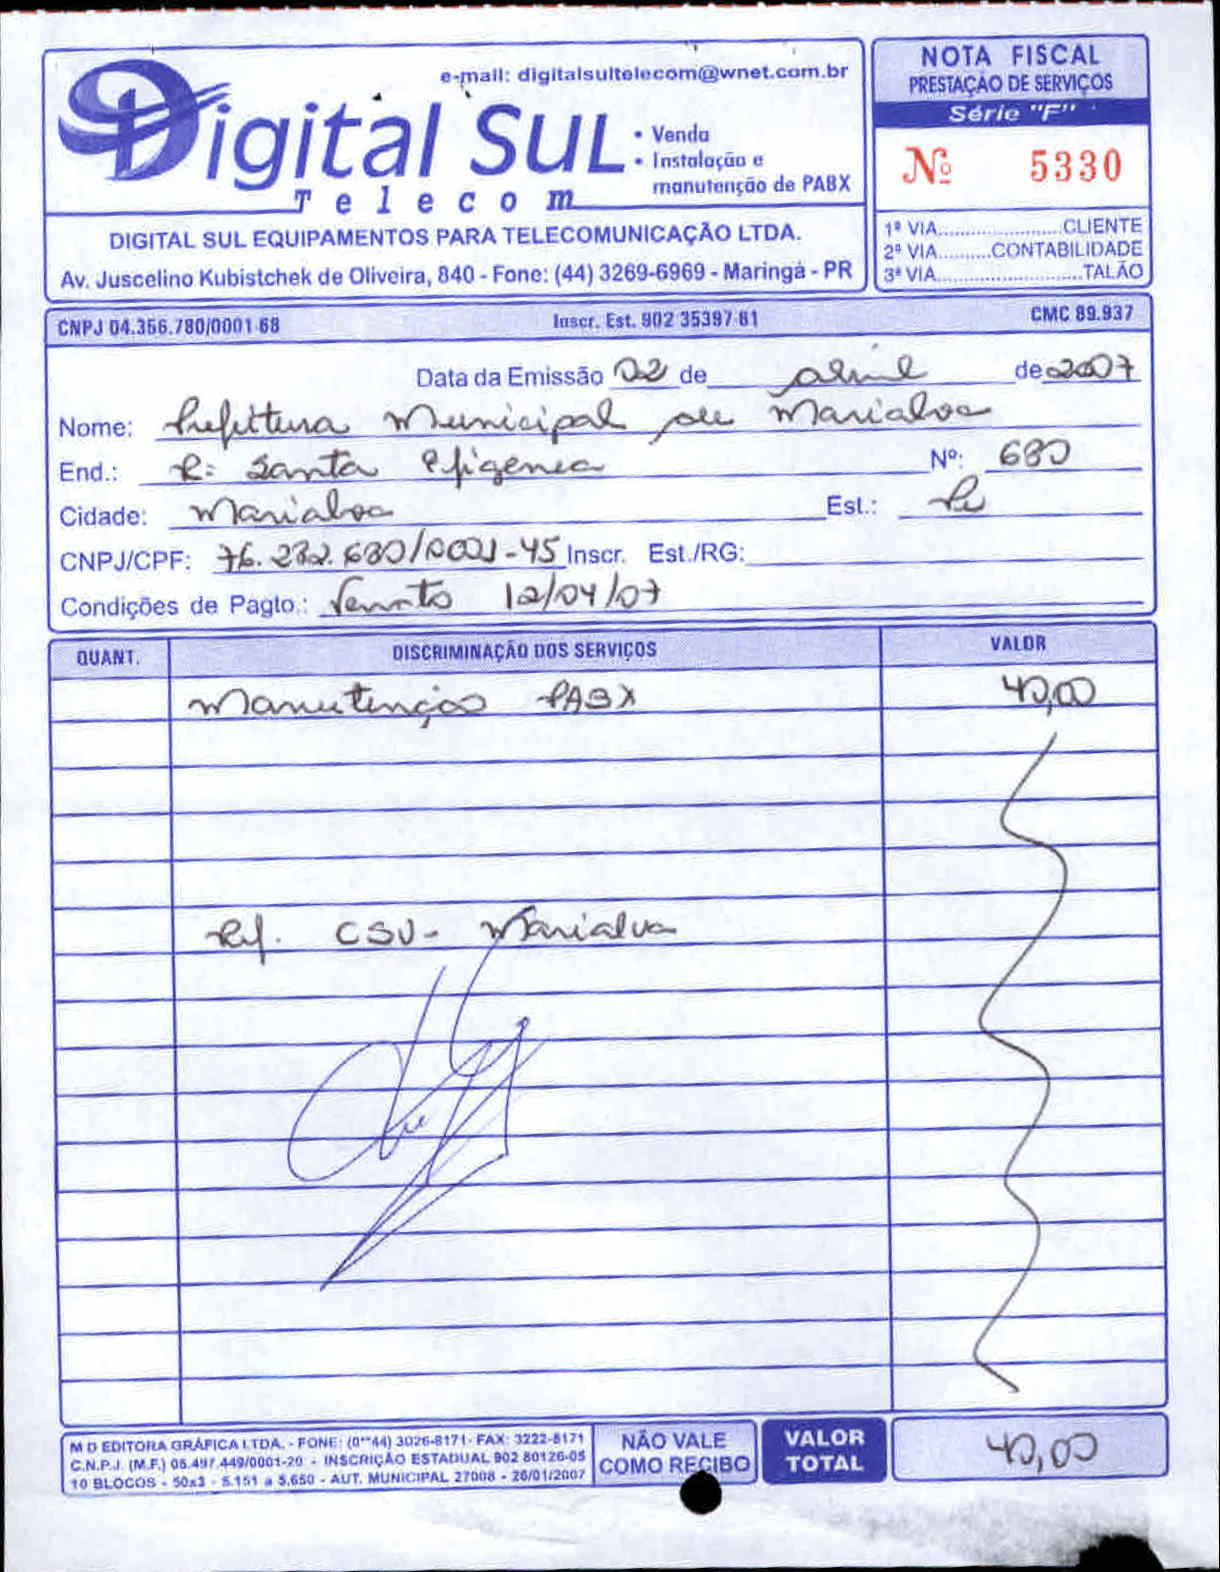 e-mail: digitalsultelecom@wnet.com.br
Digital SUL
Telecom
• Venda
• Instalação e
manutenção de PABX
DIGITAL SUL EQUIPAMENTOS PARA TELECOMUNICAÇÃO LTDA.
Av. Juscelino Kubistchek de Oliveira, 840 - Fone: (44) 3269-6969 - Maringá - PR
NOTA FISCAL
PRESTAÇÃO DE SERVIÇOS
Série "F"
Nº 5330
1ª VIA......................CLIENTE
2ª VIA..........CONTABILIDADE
3ª VIA............................TALÃO
CNPJ 04.356.780/0001-68 Inscr. Est. 902 35397-81 CMC 89.937
Data da Emissão 02 de abril de 2007
Nome: Prefeitura Municipal de Marialva
End.: R: Santa Efigenea Nº: 680
Cidade: Marialva Est.: Pr
CNPJ/CPF: 76.282.680/0001-45 Inscr. Est./RG:
Condições de Pagto.: Vencto 12/04/07
QUANT. DISCRIMINAÇÃO DOS SERVIÇOS VALOR
Manutenção PABX 40,00
Ref. CSU- Marialva
M D EDITORA GRÁFICA LTDA. - FONE: (0**44) 3026-8171- FAX: 3222-8171
C.N.P.J. (M.F.) 05.497.449/0001-20 - INSCRIÇÃO ESTADUAL 902 80126-05
10 BLOCOS - 50x3 - 5.151 a 5.650 - AUT. MUNICIPAL 27008 - 26/01/2007
NÃO VALE
COMO RECIBO
VALOR
TOTAL
40,00